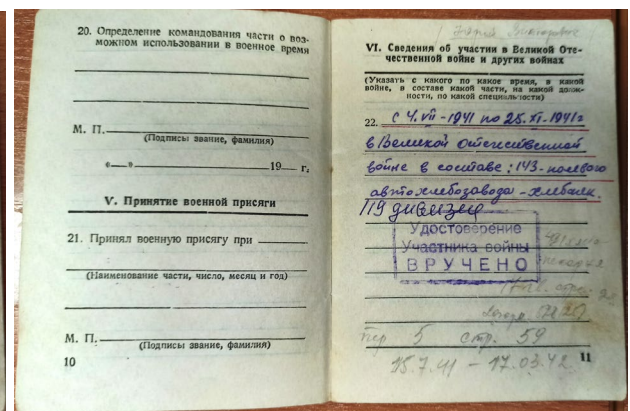 20. Определение командования части о воз-
можном использовании в военное время
М. П.
(Подписы звание, фамилия)
«—» 19— г.
V. Принятие военной присяги
21. Принял военную присягу при
(Наименование части, число, месяц и год)
М. П.
(Подписы звание, фамилия)
10
Викторович
VI. Сведения об участии в Великой Оте-
чественной войне и других войнах
(Указать с какого по какое время, в какой
войне, в составе какой части, на какой долж-
ности, по какой специальности)
22. с 4.VII-1941 по 25.XI-1941г
в Великой отечественной
войне в составе: 143-полевого
автохлебозавода - хлебопек.
119 дивизие
Удостоверение
Участника войны
ВРУЧЕНО
5 стр. 59
15.7.41 – 17.03.42
11